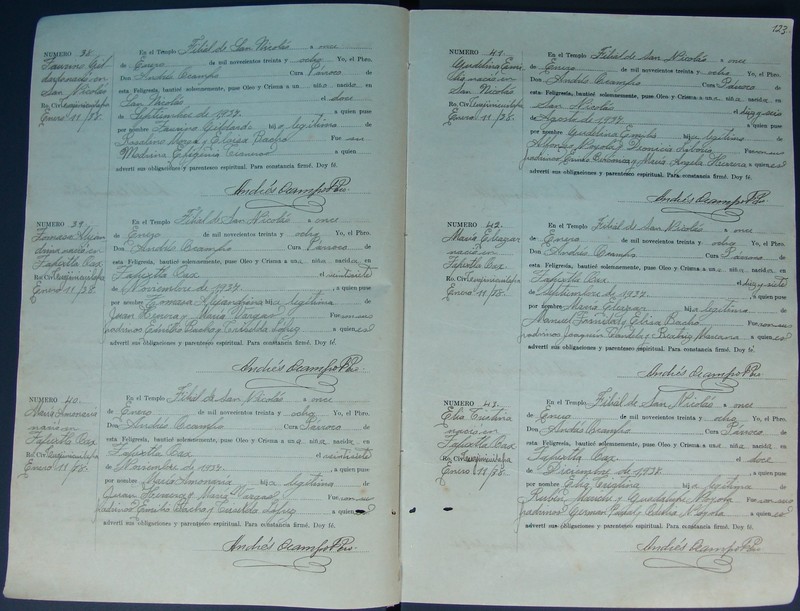 NUMERO 38.
nació en
San Nicolás
Ro. Civil
Enero 11/38.
En el Templo Filial de San Nicolás a once
de Enero de mil novecientos treinta y ocho Yo, el Pbro.
Don Andrés Ocampo Cura Párroco de
esta Feligresía, bauticé solemnemente, puse Oleo y Crisma a un niño nacido en
San Nicolás el doce
de Septiembre de 1937. a quien puse
por nombre hijo legítimo de
Fue su
Madrina a quien
advertí sus obligaciones y parentesco espiritual. Para constancia firmé. Doy fé.
Andrés Ocampo Pbro.
NUMERO 39.
nació en
Tapextla Oax
Ro. Civil
Enero 11/38.
En el Templo Filial de San Nicolás a once
de Enero de mil novecientos treinta y ocho Yo, el Pbro.
Don Andrés Ocampo Cura Párroco de
esta Feligresía, bauticé solemnemente, puse Oleo y Crisma a una niña nacida en
Tapextla Oax. el veintisiete
de Noviembre de 1937. a quien puse
por nombre Tomasa Alejandrina hija legítima de
Juan Herrera y María Vargas Fueron sus
padrinos Emilio Bacho y a quienes
advertí sus obligaciones y parentesco espiritual. Para constancia firmé. Doy fé.
Andrés Ocampo Pbro.
NUMERO 40.
nació en
Tapextla Oax
Ro. Civil
Enero 11/38.
En el Templo Filial de San Nicolás a once
de Enero de mil novecientos treinta y ocho Yo, el Pbro.
Don Andrés Ocampo Cura Párroco de
esta Feligresía, bauticé solemnemente, puse Oleo y Crisma a una niña nacida en
Tapextla Oax. el veintisiete
de Noviembre de 1937. a quien puse
por nombre María hija legítima de
Juan Herrera y María Vargas Fueron sus
padrinos Emilio Bacho y a quienes
advertí sus obligaciones y parentesco espiritual. Para constancia firmé. Doy fé.
Andrés Ocampo Pbro.
123
NUMERO 41.
nació en
San Nicolás
Ro. Civil
Enero 11/38.
En el Templo Filial de San Nicolás a once
de Enero de mil novecientos treinta y ocho Yo, el Pbro.
Don Andrés Ocampo Cura Párroco de
esta Feligresía, bauticé solemnemente, puse Oleo y Crisma a una niña nacida en
San Nicolás el diez y seis
de Agosto de 1937. a quien puse
por nombre Emilia hija legítima de
Alfonso Noyola y Dionicia Fueron sus
padrinos y María Angela Herrera a quienes
advertí sus obligaciones y parentesco espiritual. Para constancia firmé. Doy fé.
Andrés Ocampo Pbro.
NUMERO 42.
María Eleazar
nació en
Tapextla Oax.
Ro. Civil
Enero 11/38.
En el Templo Filial de San Nicolás a once
de Enero de mil novecientos treinta y ocho Yo, el Pbro.
Don Andrés Ocampo Cura Párroco de
esta Feligresía, bauticé solemnemente, puse Oleo y Crisma a una niña nacida en
Tapextla Oax. el diez y siete
de Septiembre de 1937. a quien puse
por nombre María Eleazar hija legítima de
Manuel y Elisa Bacho Fueron sus
padrinos Joaquín y Beatriz a quienes
advertí sus obligaciones y parentesco espiritual. Para constancia firmé. Doy fé.
Andrés Ocampo Pbro.
NUMERO 43.
Elia Cristina
nació en
Tapextla Oax
Ro. Civil
Enero 11/38.
En el Templo Filial de San Nicolás a once
de Enero de mil novecientos treinta y ocho Yo, el Pbro.
Don Andrés Ocampo Cura Párroco de
esta Feligresía, bauticé solemnemente, puse Oleo y Crisma a una niña nacida en
Tapextla Oax. el doce
de Diciembre de 1938. a quien puse
por nombre Elia Cristina hija legítima de
Rubén y Guadalupe Noyola Fueron sus
padrinos Germán y Noyola a quienes
advertí sus obligaciones y parentesco espiritual. Para constancia firmé. Doy fé.
Andrés Ocampo Pbro.